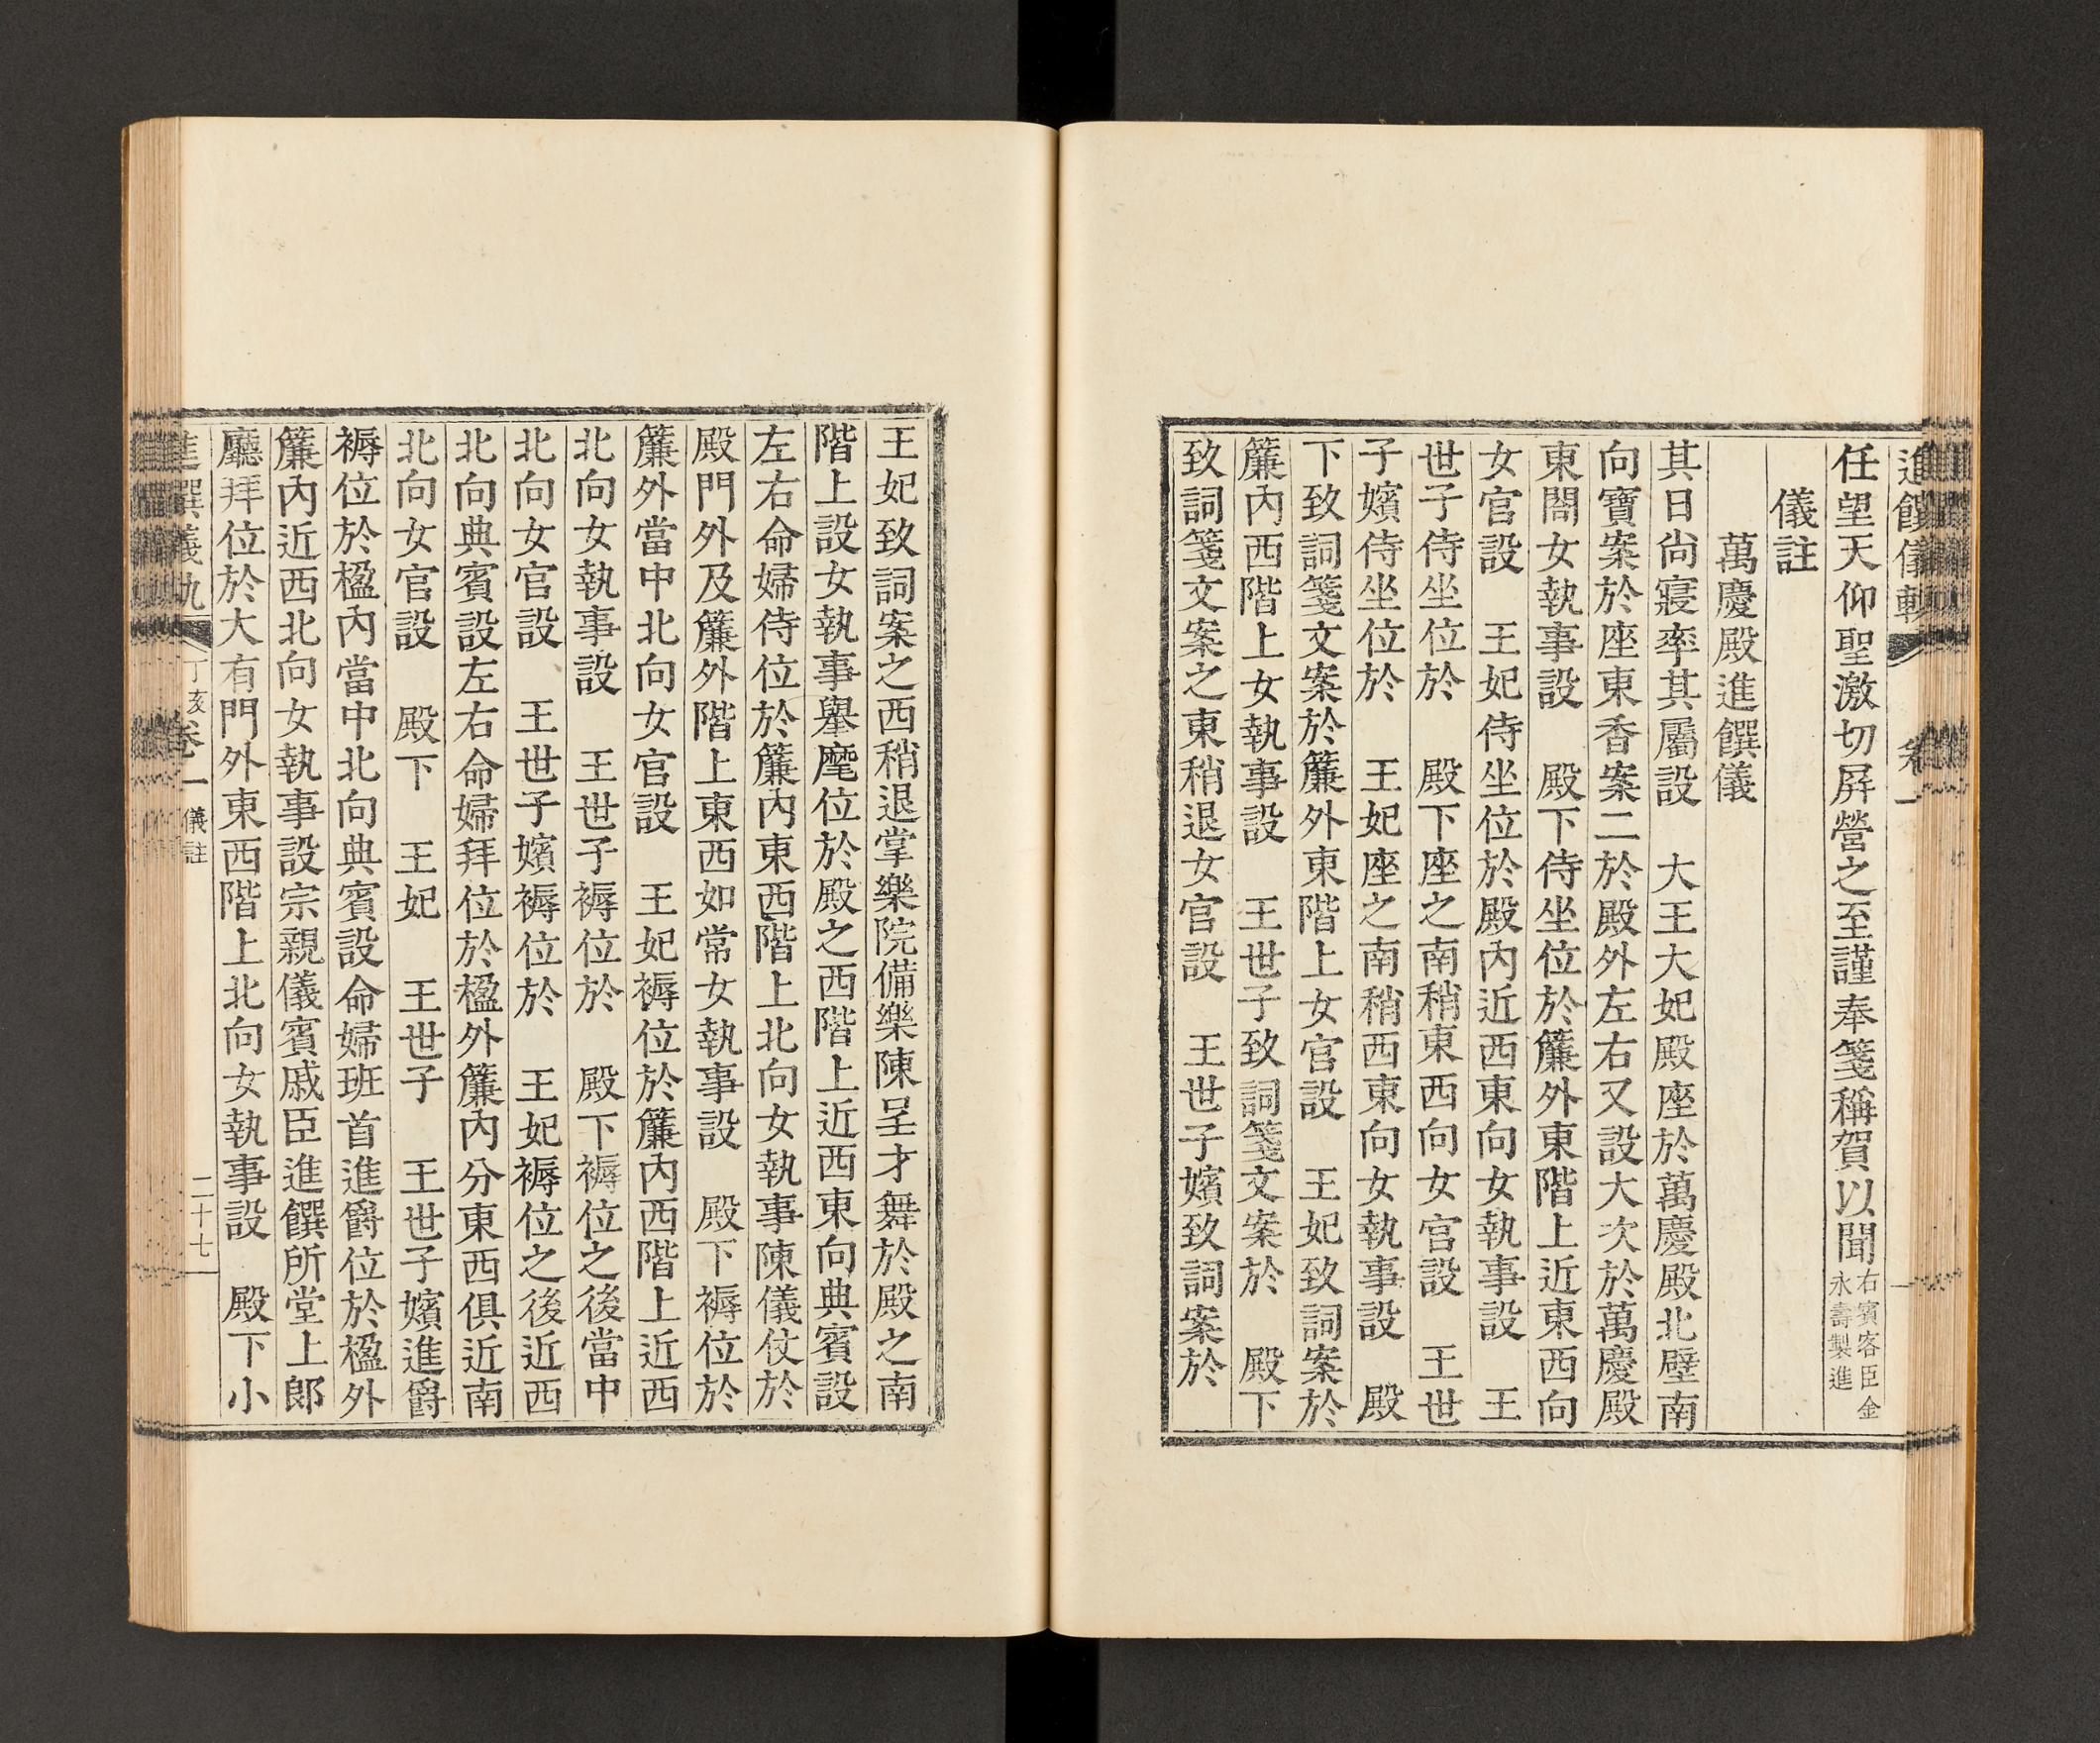 進饌儀軌 卷一
任望天仰聖激切屛營之至謹奉箋稱賀以聞右賓客臣金永壽製進
儀註
萬慶殿進饌儀
其日尙寢率其屬設 大王大妃殿座於萬慶殿北壁南
向寶案於座東香案二於殿外左右又設大次於萬慶殿
東閤女執事設 殿下侍坐位於簾外東階上近東西向
女官設 王妃侍坐位於殿內近西東向女執事設 王
世子侍坐位於 殿下座之南稍東西向女官設 王世
子嬪侍坐位於 王妃座之南稍西東向女執事設 殿
下致詞箋文案於簾外東階上女官設 王妃致詞案於
簾內西階上女執事設 王世子致詞箋文案於 殿下
致詞箋文案之東稍退女官設 王世子嬪致詞案於
王妃致詞案之西稍退掌樂院備樂陳呈才舞於殿之南
階上設女執事擧麾位於殿之西階上近西東向典賓設
左右命婦侍位於簾內東西階上北向女執事陳儀仗於
殿門外及簾外階上東西如常女執事設 殿下褥位於
簾外當中北向女官設 王妃褥位於簾內西階上近西
北向女執事設 王世子褥位於 殿下褥位之後當中
北向女官設 王世子嬪褥位於 王妃褥位之後近西
北向典賓設左右命婦拜位於楹外簾內分東西俱近南
北向女官設 殿下 王妃 王世子 王世子嬪進爵
褥位於楹內當中北向典賓設命婦班首進爵位於楹外
簾內近西北向女執事設宗親儀賓戚臣進饌所堂上郞
廳拜位於大有門外東西階上北向女執事設 殿下小
進饌儀軌 丁亥 卷一 儀註 二十七